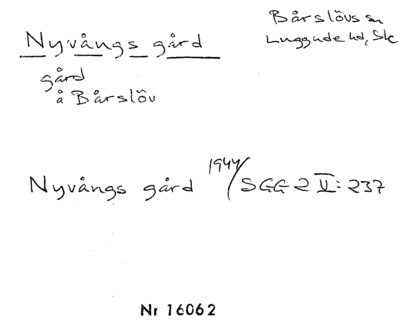 Nyvångs gård
Bårslövs sn
Luggude hd, Sk
gård
å Bårslöv
Nyvångs gård 1944/SGG 2 V: 237
Nr 16062